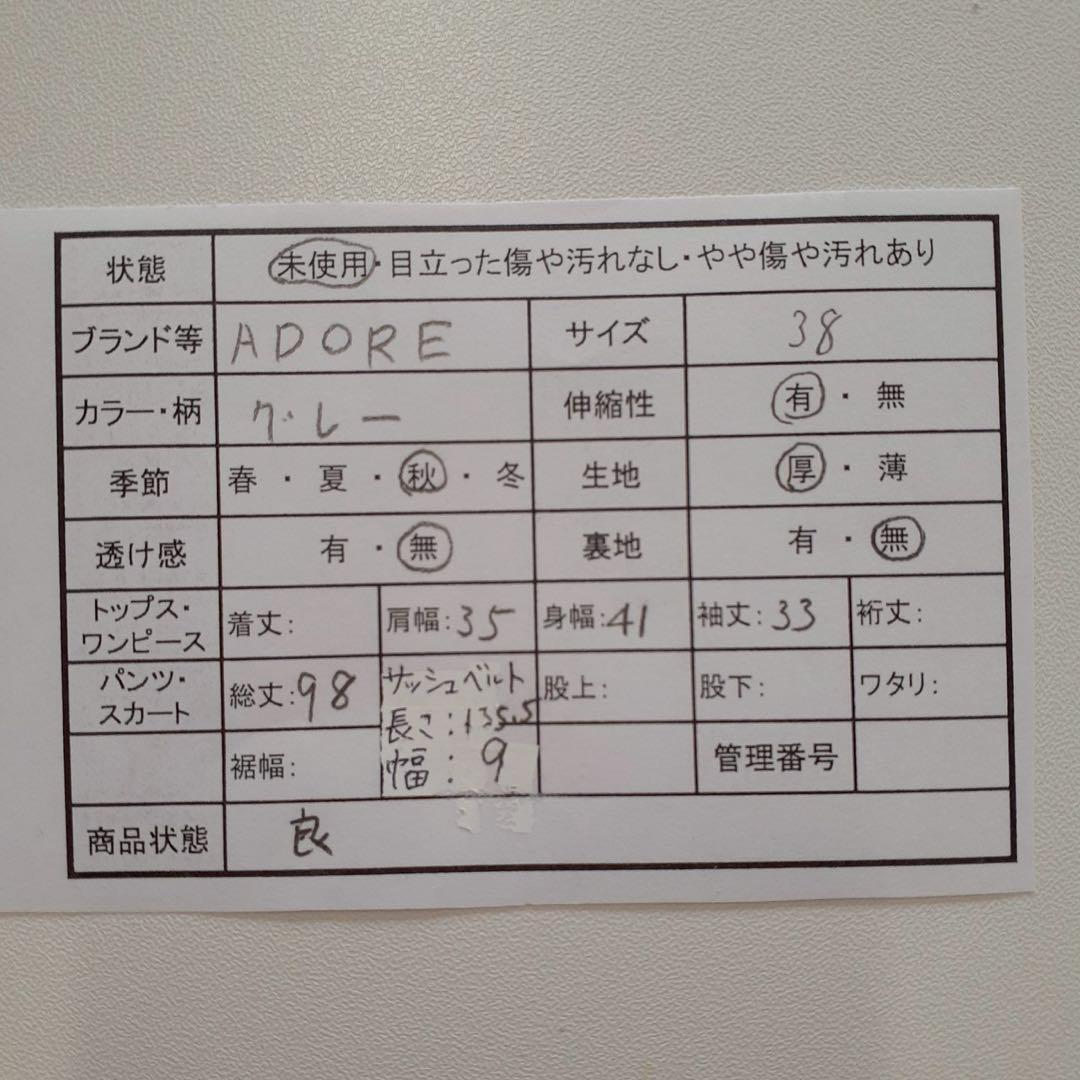 状態 未使用・目立った傷や汚れなし・やや傷や汚れあり
ブランド等 ADORE サイズ 38
カラー・柄 グレー 伸縮性 有・無
季節 春・夏・秋・冬 生地 厚・薄
透け感 有・無 裏地 有・無
トップス・
ワンピース 着丈: 肩幅:35 身幅:41 袖丈:33 裄丈:
パンツ・
スカート 総丈:98 サッシュベルト 股上: 股下: ワタリ:
長さ:135.5
裾幅: 幅:9 管理番号
商品状態 良